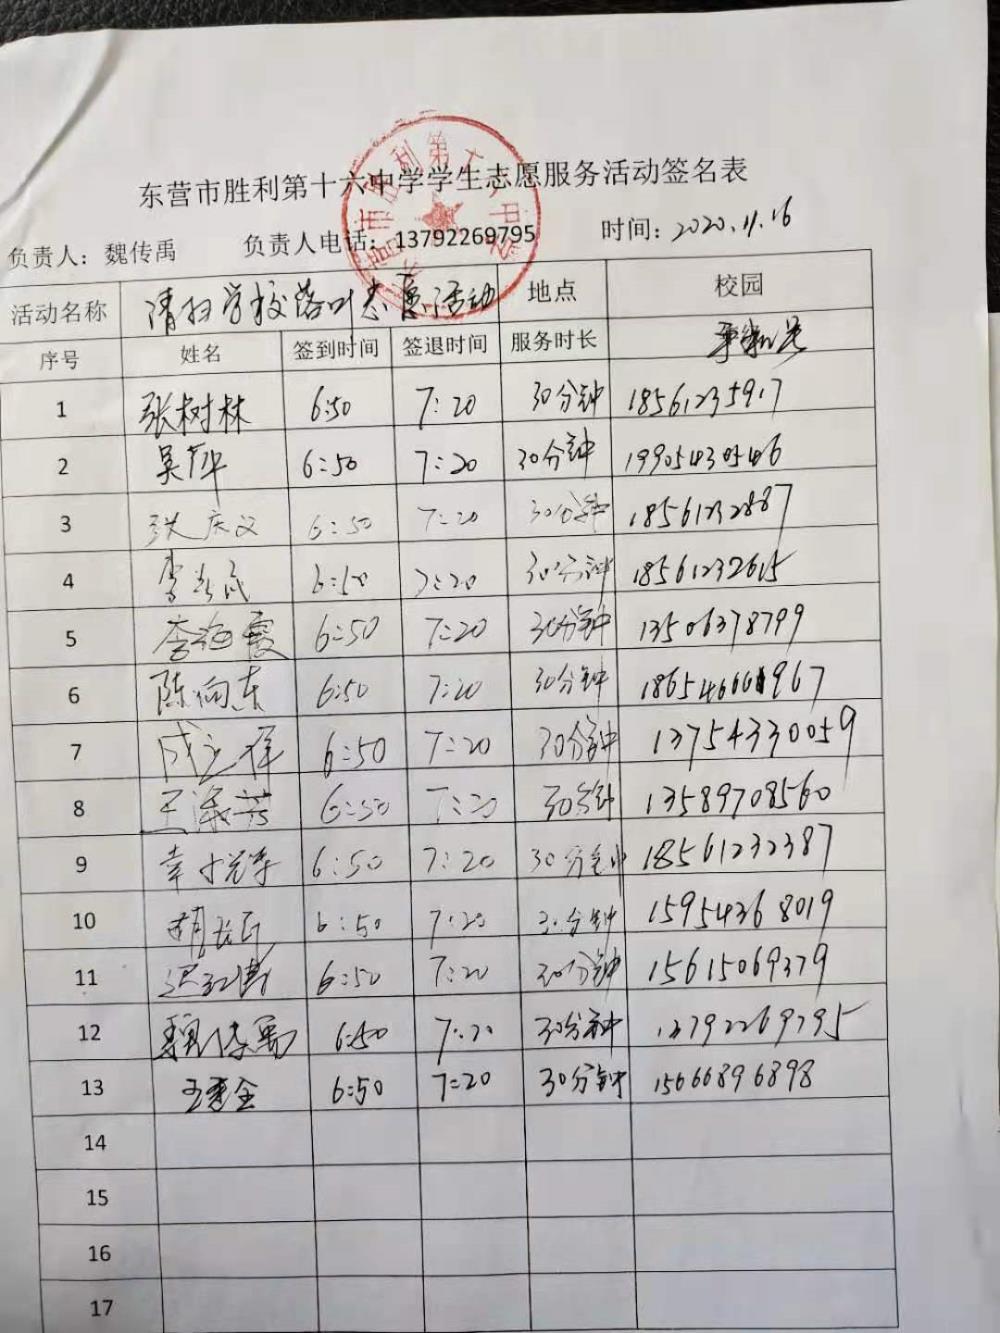 东营市胜利第十六中学学生志愿服务活动签名表
负责人：魏传禹 负责人电话：13792269795 时间：2020.11.16
活动名称 清扫学校落叶志愿活动 地点 校园
序号 姓名 签到时间 签退时间 服务时长
1 张树林 6:50 7:20 30分钟 18561235917
2 吴萍 6:50 7:20 30分钟 19905430546
3 张庆义 6:50 7:20 30分钟 18561232887
4 6:50 7:20 30分钟 18561232615
5 李海霞 6:50 7:20 30分钟 13506378799
6 陈向东 6:50 7:20 30分钟
7 6:50 7:20 30分钟 13754330059
8 王淑芳 6:50 7:20 30分钟 13589708560
9 6:50 7:20 30分钟 18561232387
10 6:50 7:20 30分钟 15954368019
11 6:50 7:20 30分钟 15615069379
12 魏传禹 6:50 7:20 30分钟 13792269795
13 6:50 7:20 30分钟 15666896898
14
15
16
17